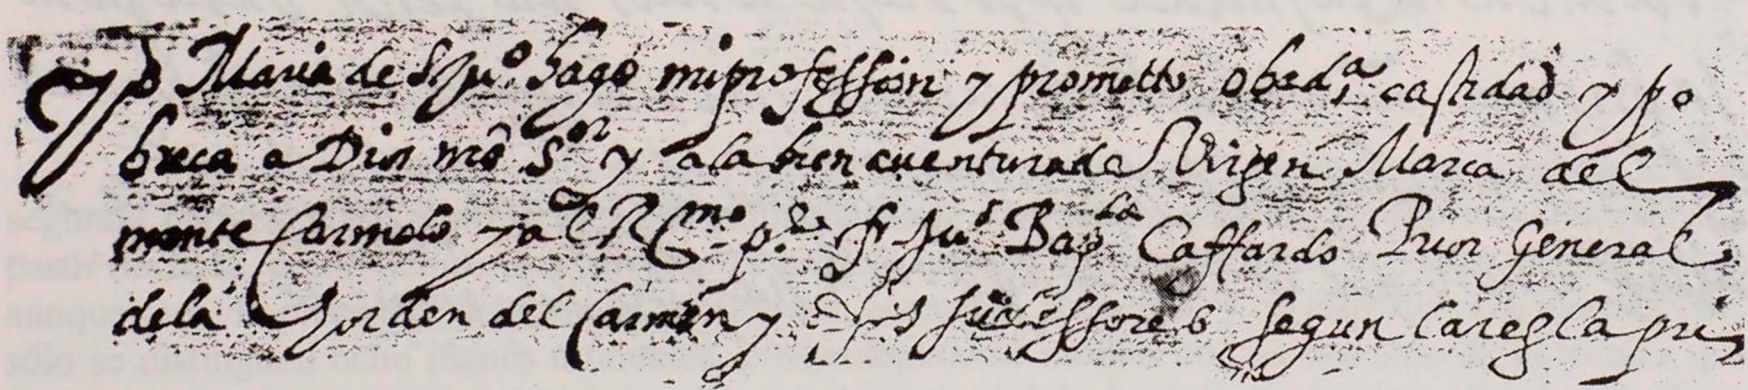 Yo Maria de S Ju.º hago mi profession y prometto obed.ª castidad y po
breça a Dios nrõ S.or y a la bien auenturada Virgen Maria del
monte Carmelo y al R.mo p.e fr Juº Bap.ta Caffardo Prior General
de la horden del Carmen y a sus successores segun la regla pri